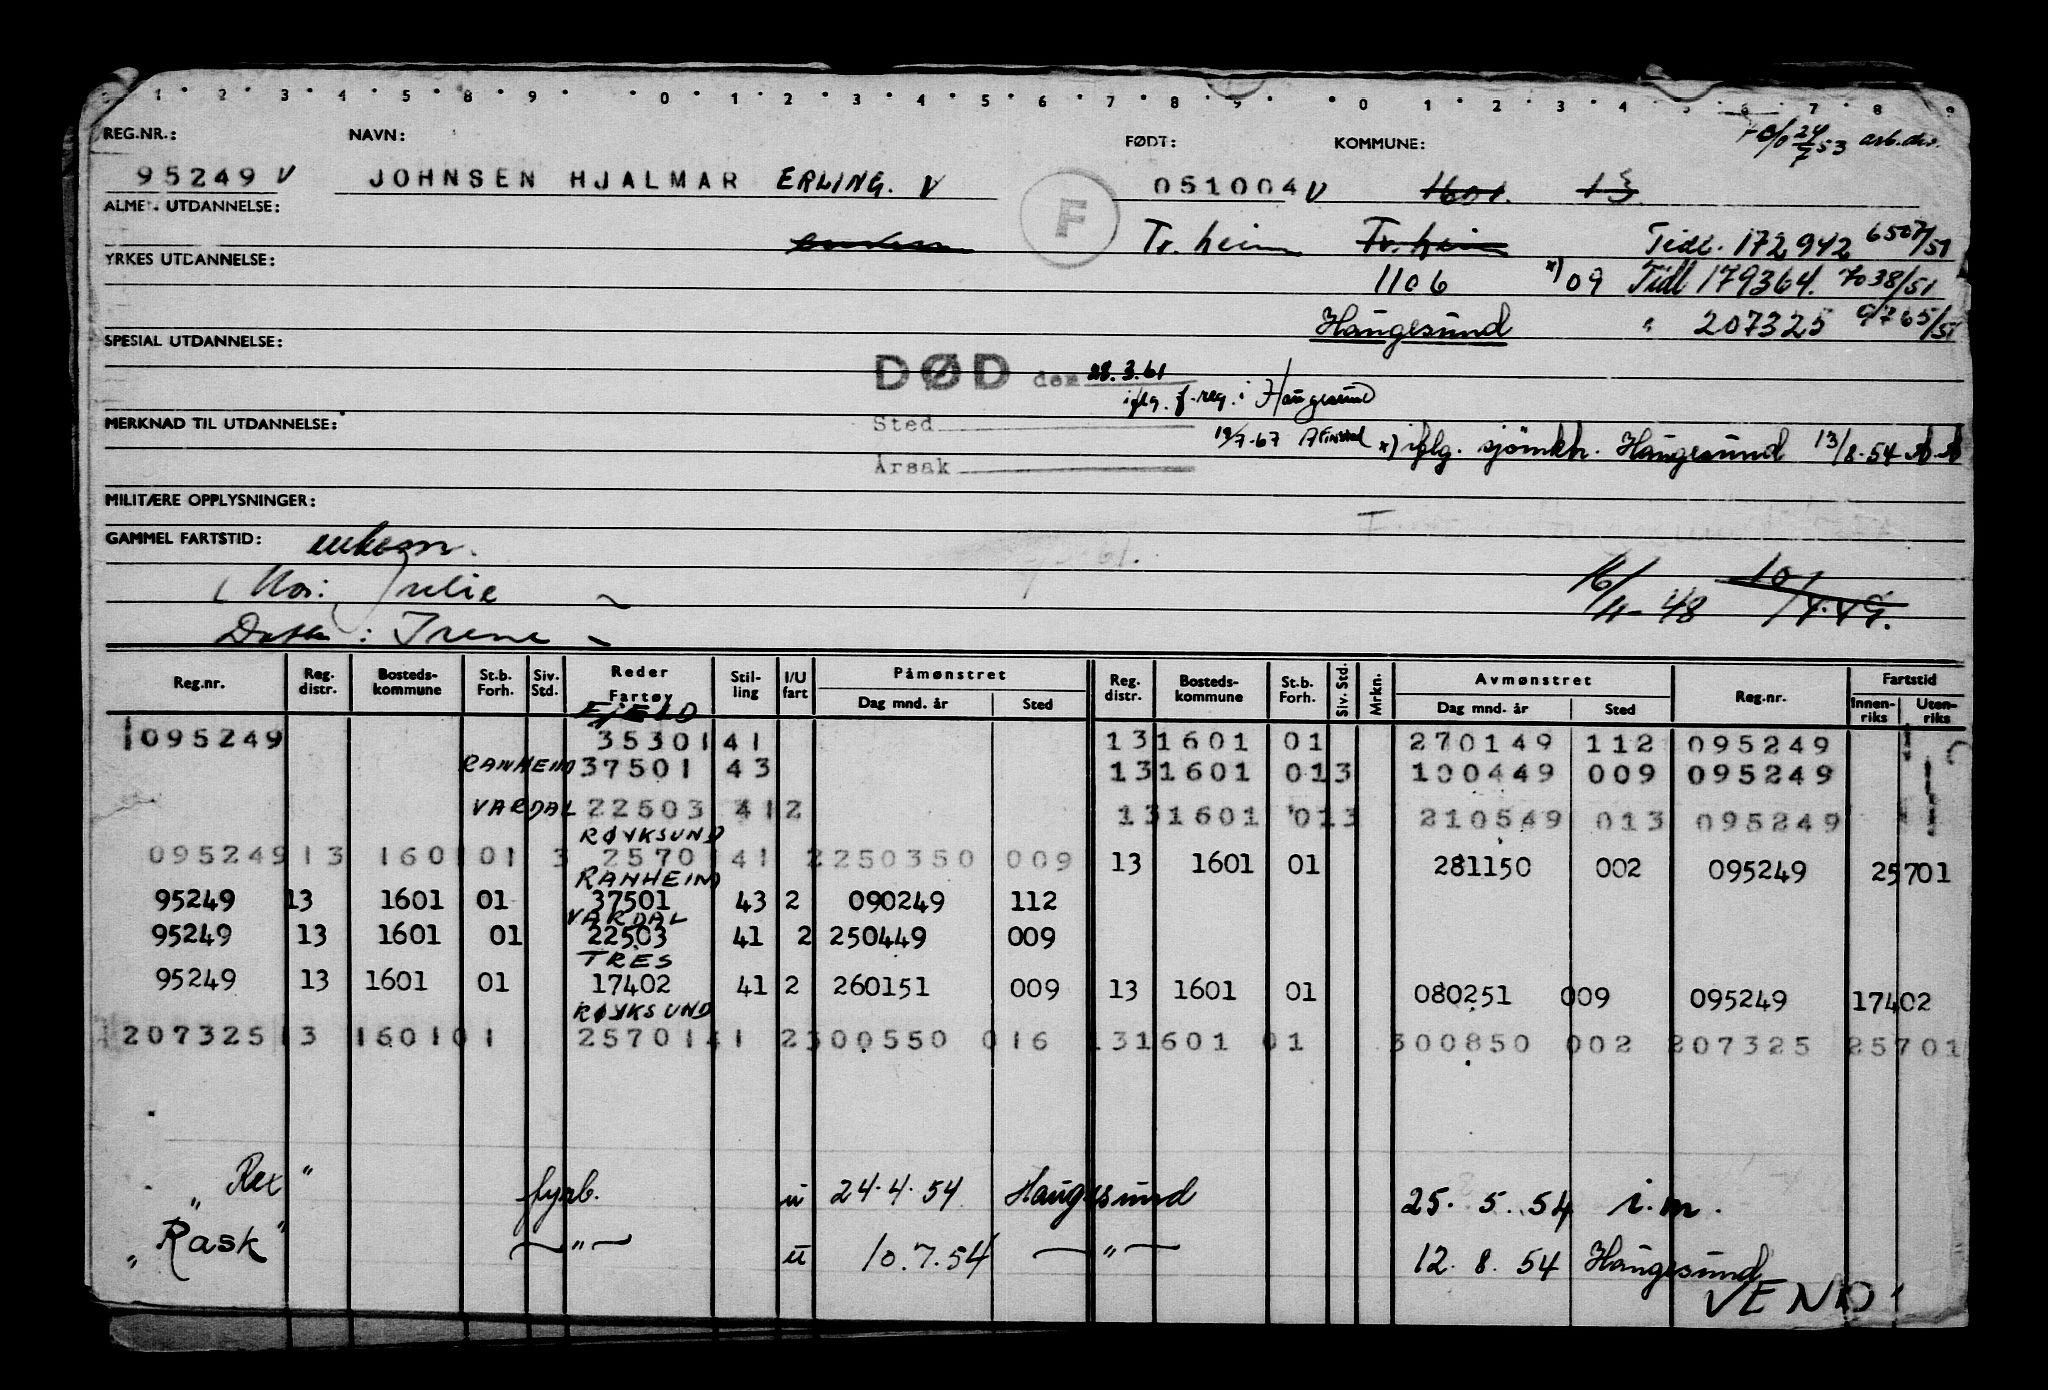 1 2 3 4 5 8 9 0 1 2 3 4 5 6 7 8 9 0 1 2 3 4 5 6 7 8 9
REG.NR.: NAVN: FØDT: KOMMUNE: 24/7 53 arb.dir.
95249 V JOHNSEN HJALMAR ERLING. V F 051004 V 1601. 13
ALMEN UTDANNELSE:
Tr.heim Tr.heim Tidl. 172942 6507/51
YRKES UTDANNELSE:
1106 x) 09 Tidl 179364. 7038/51
Haugesund " 207325 9765/51
SPESIAL UTDANNELSE:
DØD den 28.3.61
iflg. f.-reg. i Haugesund
MERKNAD TIL UTDANNELSE: Sted
19/7-67 x) iflg. sjömktr. Haugesund 13/8-54
Årsak
MILITÆRE OPPLYSNINGER:
GAMMEL FARTSTID: ukesm.
Mor: Julie 16/11-48 10/4.49.
Datter: Irene
Reg.nr. Reg. distr. Bosteds- kommune St.b. Forh. Siv. Std. Reder Fartøy Stil- ling I/U fart Påmønstret Dag mnd. år Sted Reg. distr. Bosteds- kommune St.b. Forh. Siv. Std. Mrkn. Avmønstret Dag mnd. år Sted Reg.nr. Fartstid Innen- riks Uten- riks
FJELD
1095249 35301 41 13 1601 01 270149 112 095249
RANHEIM 37501 43 13 1601 01 3 100449 009 095249
VARDAL 22503 41 2 13 1601 01 3 210549 013 095249
RØYKSUND
095249 13 1601 01 3 25701 41 2 250350 009 13 1601 01 281150 002 095249 25701
RANHEIM
95249 13 1601 01 37501 43 2 090249 112
VARDAL
95249 13 1601 01 22503 41 2 250449 009
TRES
95249 13 1601 01 17402 41 2 260151 009 13 1601 01 080251 009 095249 17402
RØYKSUND
207325 13 1601 01 25701 41 2 300550 016 13 1601 01 300850 002 207325 25701
"Rex" fyrb. u 24.4.54 Haugesund 25.5.54 i.m.
"Rask" —"— u 10.7.54 —"— 12.8.54 Haugesund
VEND!